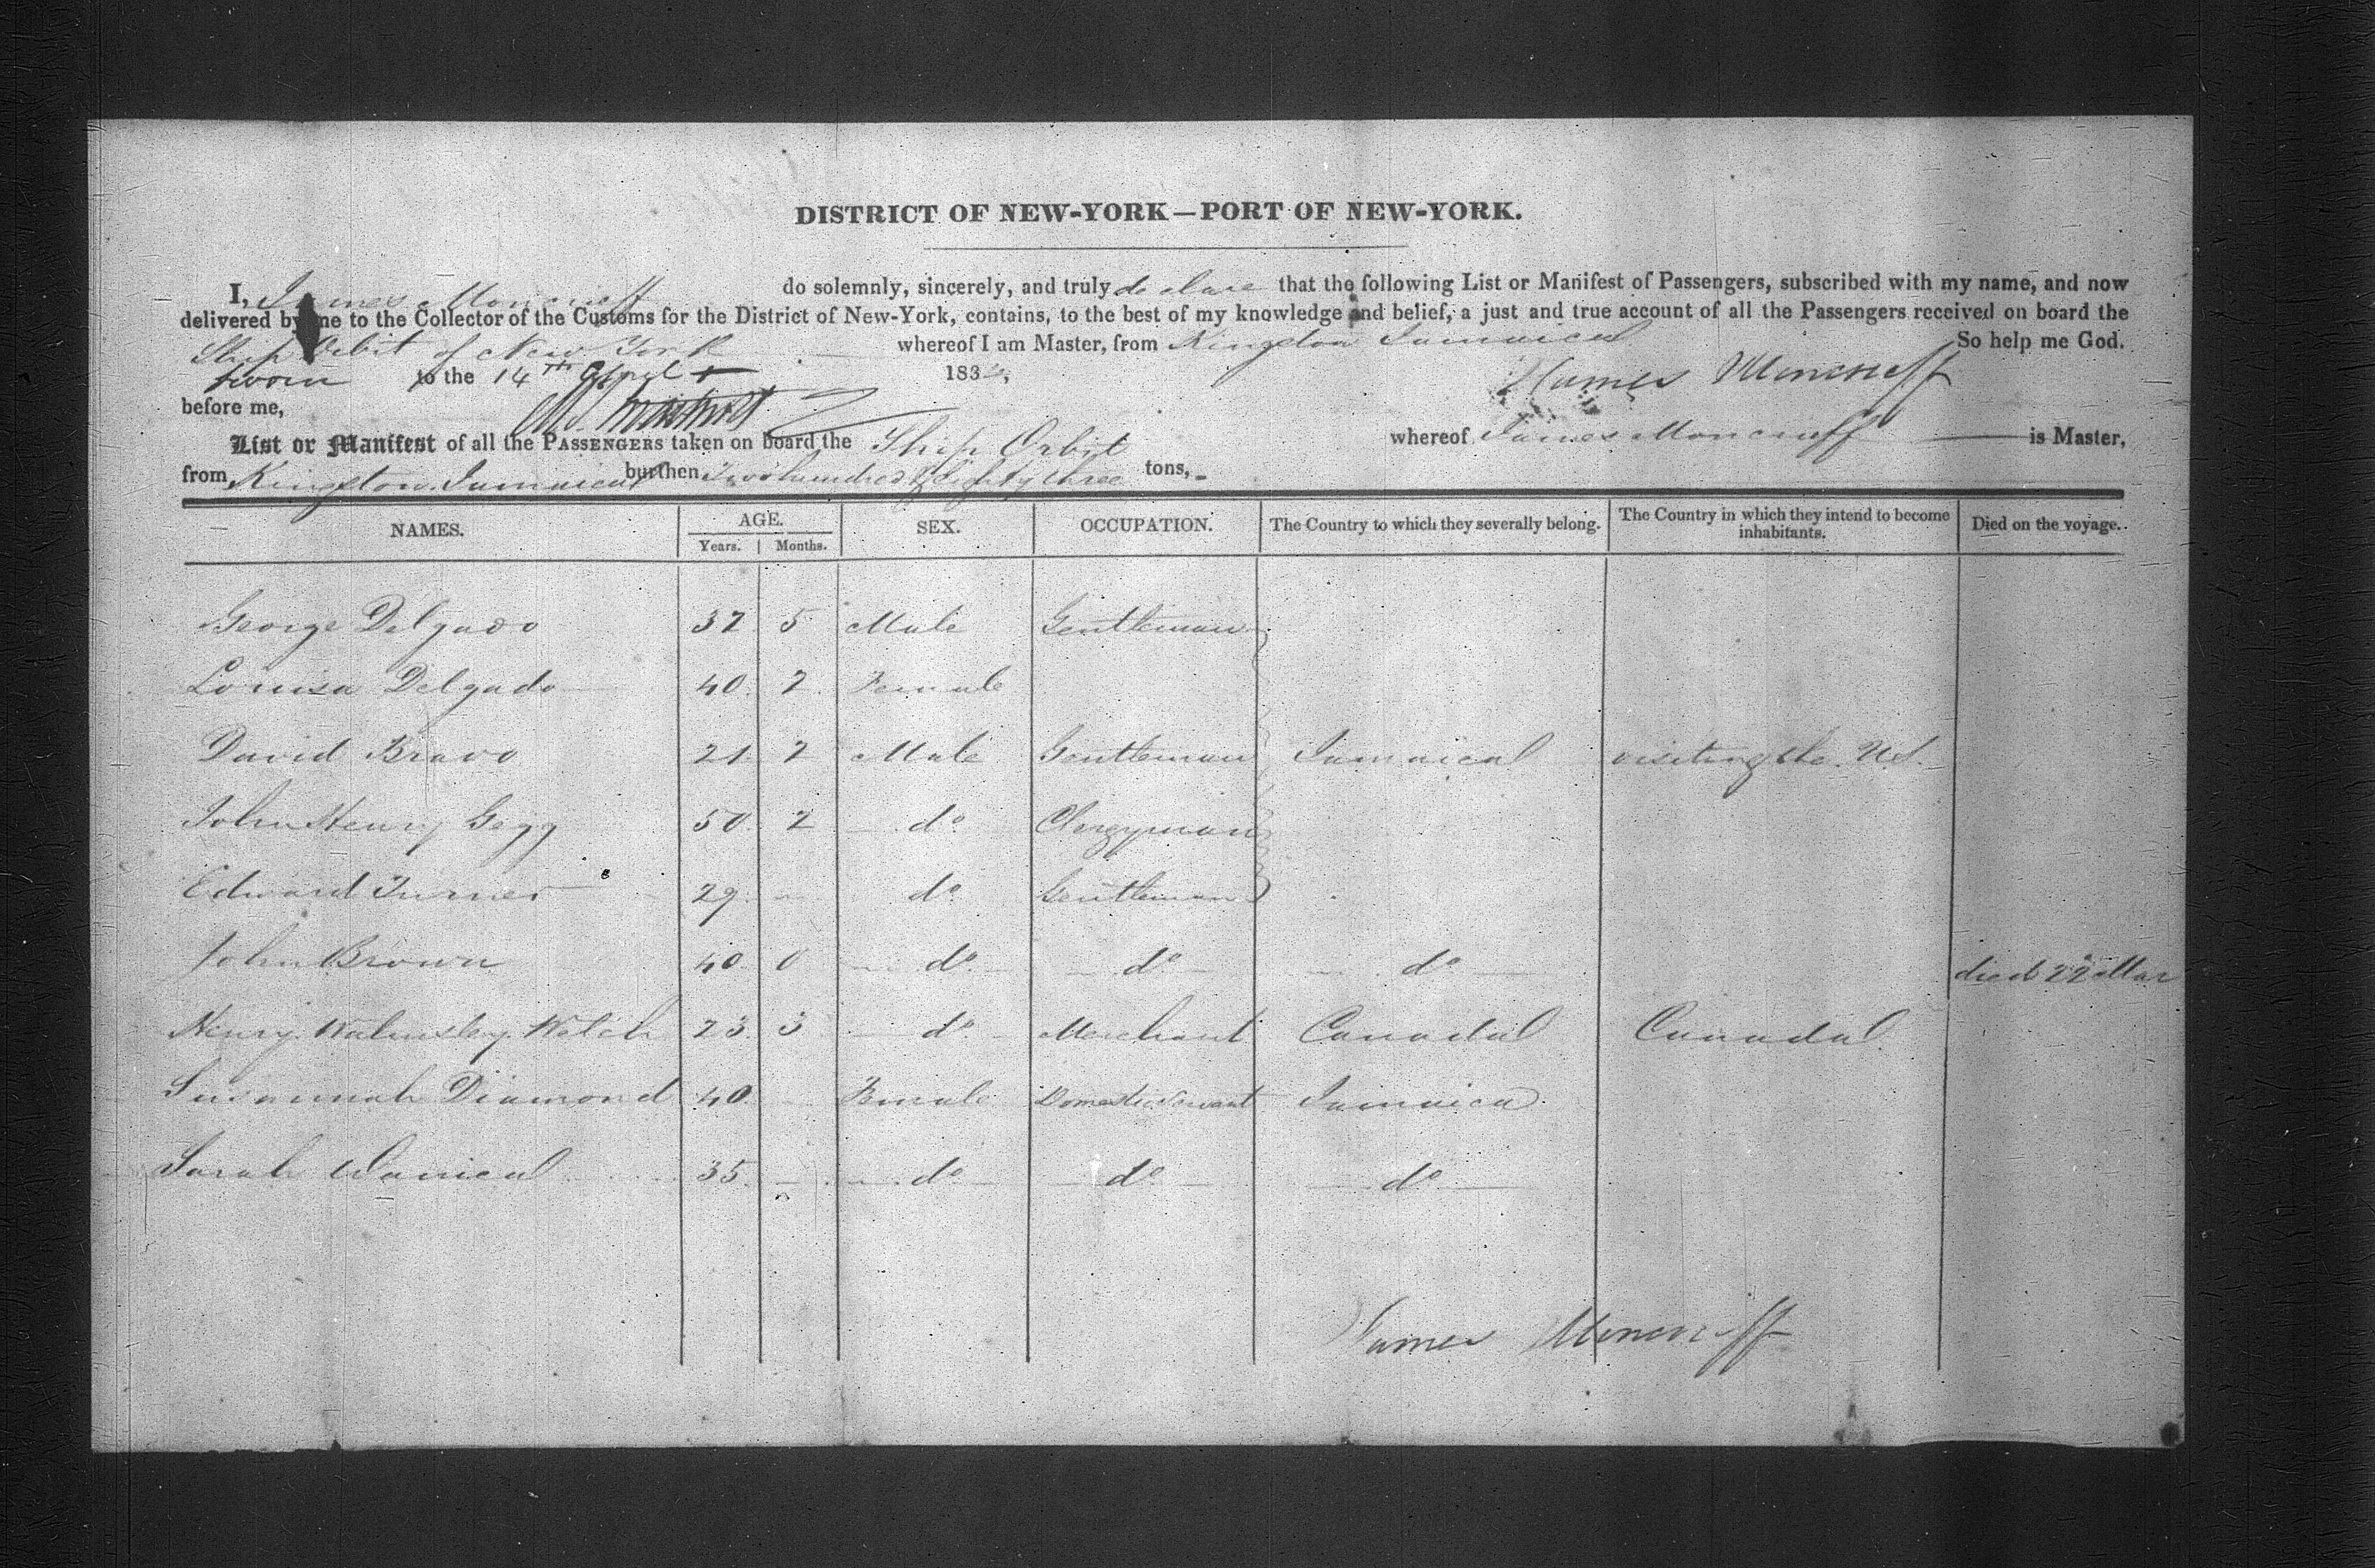 DISTRICT OF NEW-YORK—PORT OF NEW-YORK.
I, James Moncrieff do solemnly, sincerely, and truly declare that the following List or Manifest of Passengers, subscribed with my name, and now
delivered by me to the Collector of the Customs for the District of New-York, contains, to the best of my knowledge and belief, a just and true account of all the Passengers received on board the
Ship Orbit of New York whereof I am Master, from Kingston Jamaica So help me God.
Sworn to the 14th April 183 James Moncrieff
before me,
List or Manifest of all the PASSENGERS taken on board the Ship Orbit whereof James Moncrieff is Master,
from Kingston Jamaica burthen Two hundred & Eighty three tons,
NAMES. AGE. SEX. OCCUPATION. The Country to which they severally belong. The Country in which they intend to become inhabitants. Died on the voyage.
Years. Months.
George Delgado 37 5 Male Gentleman
Louisa Delgado 40 7 Female
David Bravo 21 7 Male Gentleman Jamaica visiting the U.S.
John Henry Gegg 50 2 do Clergyman
Edward Turner 29 - do Gentleman
John Brown 40 0 do do do died 22 Mar
Henry Walmsley Welch 23 3 do Merchant Canada Canada
Susannah Diamond 40 Female Domestic Servant Jamaica
Sarah 35 - do do do
James Moncrieff